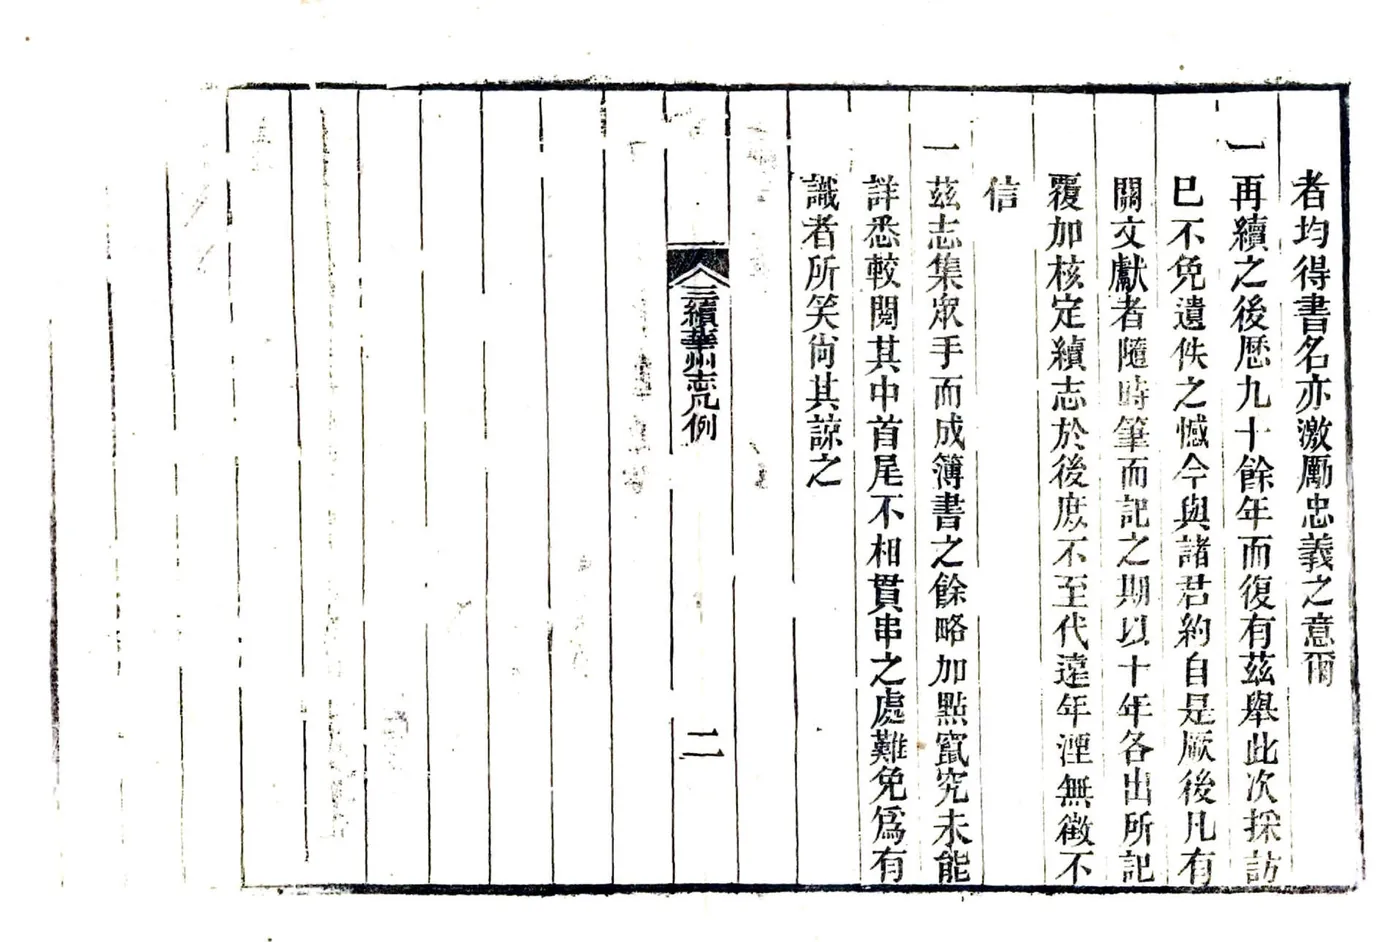 者均得書名亦激勵忠義之意爾
一再續之後歷九十餘年而復有茲舉此次採訪
已不免遺佚之憾今與諸君約自是厥後凡有
關文獻者隨時筆而記之期以十年各出所記
覆加核定續志於後庶不至代遠年湮無徵不
信
一茲志集眾手而成簿書之餘略加點竄究未能
詳悉較閱其中首尾不相貫串之處難免爲有
識者所笑尙其諒之
三續華州志凡例
二